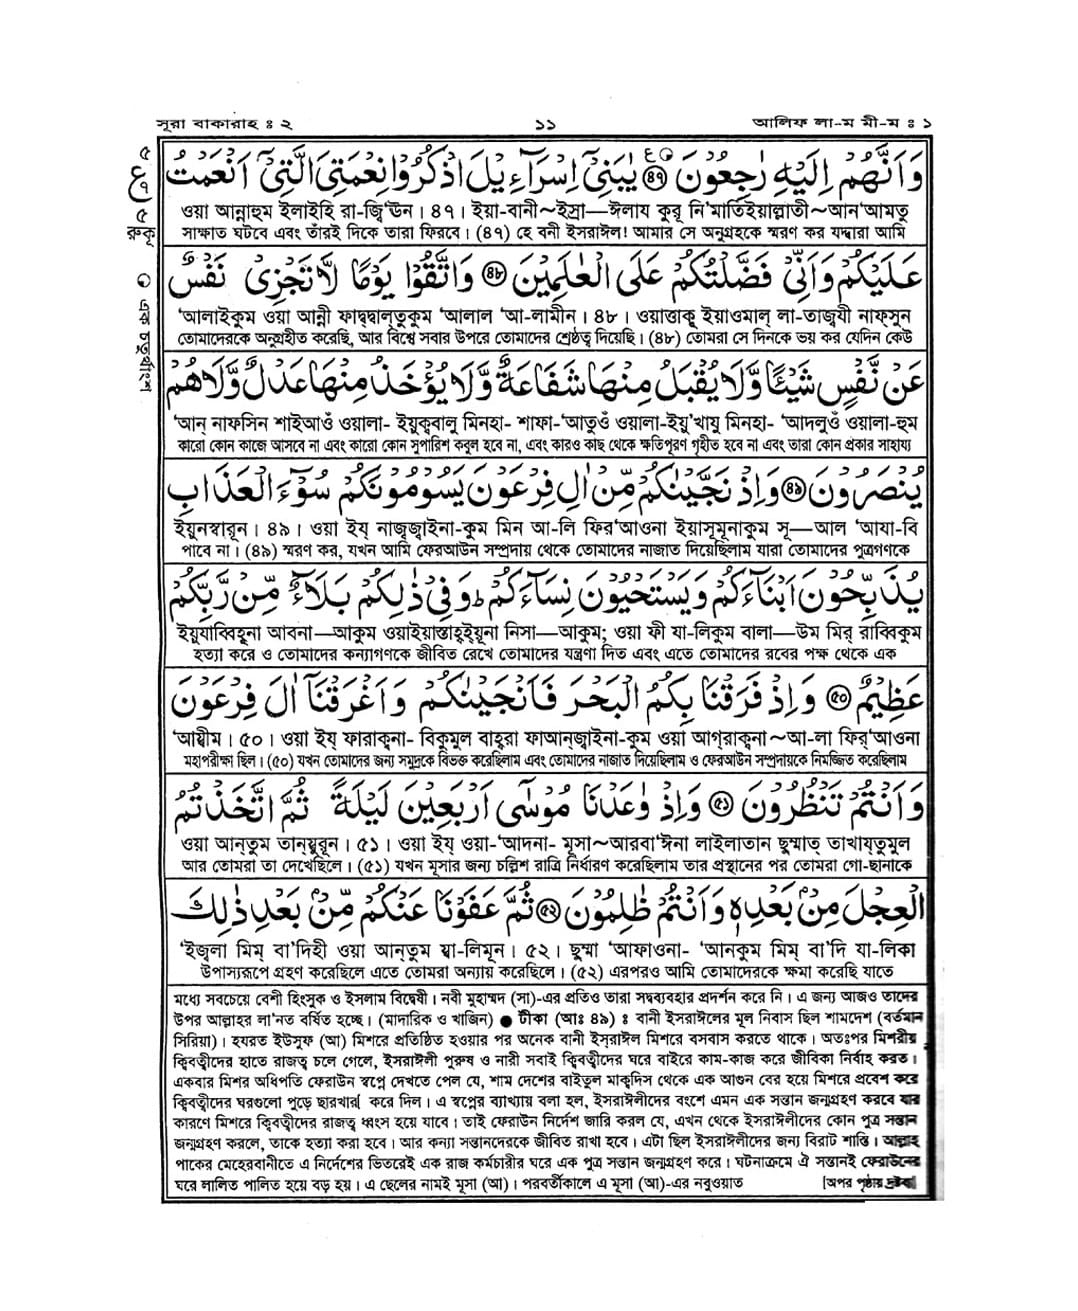 সূরা বাকারাহ ঃ ২ ১১ আলিফ লা-ম মী-ম ঃ ১
وَاَنَّهُمْ اِلَيْهِ رٰجِعُوْنَ ﴿৪৭﴾ يٰبَنِيْٓ اِسْرَآءِيْلَ اذْكُرُوْا نِعْمَتِيَ الَّتِيْٓ اَنْعَمْتُ
ওয়া আন্নাহুম ইলাইহি রা-জ্বি'ঊন। ৪৭। ইয়া-বানী~ইস্রা—ঈলায কুরূ নি'মাতিইয়াল্লাতী~আন'আমতু
সাক্ষাত ঘটবে এবং তাঁরই দিকে তারা ফিরবে। (৪৭) হে বনী ইসরাঈল! আমার সে অনুগ্রহকে স্মরণ কর যদ্দ্বারা আমি
عَلَيْكُمْ وَاَنِّيْ فَضَّلْتُكُمْ عَلَى الْعٰلَمِيْنَ ﴿৪৮﴾ وَاتَّقُوْا يَوْمًا لَّا تَجْزِيْ نَفْسٌ
'আলাইকুম ওয়া আন্নী ফাদ্দ্বাল্‌তুকুম 'আলাল 'আ-লামীন। ৪৮। ওয়াত্তাকূ ইয়াওমাল্ লা-তাজ্বযী নাফ্‌সুন
তোমাদেরকে অনুগ্রহীত করেছি, আর বিশ্বে সবার উপরে তোমাদের শ্রেষ্ঠত্ব দিয়েছি। (৪৮) তোমরা সে দিনকে ভয় কর যেদিন কেউ
عَنْ نَّفْسٍ شَيْـًٔا وَّلَا يُقْبَلُ مِنْهَا شَفَاعَةٌ وَّلَا يُؤْخَذُ مِنْهَا عَدْلٌ وَّلَا هُمْ
'আন্ নাফসিন শাইআওঁ ওয়ালা- ইয়ুক্ববালু মিনহা- শাফা-'আতুওঁ ওয়ালা-ইয়ু'খাযু মিনহা- 'আদলুওঁ ওয়ালা-হুম
কারো কোন কাজে আসবে না এবং কারো কোন সুপারিশ কবুল হবে না, এবং কারও কাছ থেকে ক্ষতিপূরণ গৃহীত হবে না এবং তারা কোন প্রকার সাহায্য
يُنْصَرُوْنَ ﴿৪৯﴾ وَاِذْ نَجَّيْنٰكُمْ مِّنْ اٰلِ فِرْعَوْنَ يَسُوْمُوْنَكُمْ سُوْٓءَ الْعَذَابِ
ইয়ুনস্বারূন। ৪৯। ওয়া ইয্ নাজ্জ্বাইনা-কুম মিন আ-লি ফির'আওনা ইয়াসূমূনাকুম সূ—আল 'আযা-বি
পাবে না। (৪৯) স্মরণ কর, যখন আমি ফেরআউন সম্প্রদায় থেকে তোমাদের নাজাত দিয়েছিলাম যারা তোমাদের পুত্রগণকে
يُذَبِّحُوْنَ اَبْنَآءَكُمْ وَيَسْتَحْيُوْنَ نِسَآءَكُمْ ؕ وَفِيْ ذٰلِكُمْ بَلَآءٌ مِّنْ رَّبِّكُمْ
ইয়ুযাব্বিহূনা আবনা—আকুম ওয়াইয়াস্তাহ্ইয়ূনা নিসা—আকুম; ওয়া ফী যা-লিকুম বালা—উম মির্ রাব্বিকুম
হত্যা করে ও তোমাদের কন্যাগণকে জীবিত রেখে তোমাদের যন্ত্রণা দিত এবং এতে তোমাদের রবের পক্ষ থেকে এক
عَظِيْمٌ ﴿৫০﴾ وَاِذْ فَرَقْنَا بِكُمُ الْبَحْرَ فَاَنْجَيْنٰكُمْ وَاَغْرَقْنَآ اٰلَ فِرْعَوْنَ
'আযীম। ৫০। ওয়া ইয্ ফারাক্বনা- বিকুমুল বাহ্‌রা ফাআন্‌জ্বাইনা-কুম ওয়া আগ্‌রাক্বনা~আ-লা ফির্'আওনা
মহাপরীক্ষা ছিল। (৫০) যখন তোমাদের জন্য সমুদ্রকে বিভক্ত করেছিলাম এবং তোমাদের নাজাত দিয়েছিলাম ও ফেরআউন সম্প্রদায়কে নিমজ্জিত করেছিলাম
وَاَنْتُمْ تَنْظُرُوْنَ ﴿৫১﴾ وَاِذْ وٰعَدْنَا مُوْسٰٓى اَرْبَعِيْنَ لَيْلَةً ثُمَّ اتَّخَذْتُمُ
ওয়া আন্‌তুম তান্‌যুরূন। ৫১। ওয়া ইয্ ওয়া-'আদনা- মূসা~আরবা'ঈনা লাইলাতান ছুম্মাত্ তাখায্‌তুমুল
আর তোমরা তা দেখেছিলে। (৫১) যখন মূসার জন্য চল্লিশ রাত্রি নির্ধারণ করেছিলাম তার প্রস্থানের পর তোমরা গো-ছানাকে
الْعِجْلَ مِنْۢ بَعْدِهٖ وَاَنْتُمْ ظٰلِمُوْنَ ﴿৫২﴾ ثُمَّ عَفَوْنَا عَنْكُمْ مِّنْۢ بَعْدِ ذٰلِكَ
'ইজ্বলা মিম্ বা'দিহী ওয়া আন্‌তুম যা-লিমূন। ৫২। ছুম্মা 'আফাওনা- 'আনকুম মিম্ বা'দি যা-লিকা
উপাস্যরূপে গ্রহণ করেছিলে এতে তোমরা অন্যায় করেছিলে। (৫২) এরপরও আমি তোমাদেরকে ক্ষমা করেছি যাতে
মধ্যে সবচেয়ে বেশী হিংসুক ও ইসলাম বিদ্বেষী। নবী মুহাম্মদ (সা)-এর প্রতিও তারা সদ্ব্যবহার প্রদর্শন করে নি। এ জন্য আজও তাদের
উপর আল্লাহর লা'নত বর্ষিত হচ্ছে। (মাদারিক ও খাজিন) ● টীকা (আঃ ৪৯) ঃ বানী ইসরাঈলের মূল নিবাস ছিল শামদেশ (বর্তমান
সিরিয়া)। হযরত ইউসুফ (আ) মিশরে প্রতিষ্ঠিত হওয়ার পর অনেক বানী ইস্‌রাঈল মিশরে বসবাস করতে থাকে। অতঃপর মিশরীয়
ক্বিবতীদের হাতে রাজত্ব চলে গেলে, ইসরাঈলী পুরুষ ও নারী সবাই ক্বিবতীদের ঘরে বাইরে কাম-কাজ করে জীবিকা নির্বাহ করত।
একবার মিশর অধিপতি ফেরাউন স্বপ্নে দেখতে পেল যে, শাম দেশের বাইতুল মাক্‌দিস থেকে এক আগুন বের হয়ে মিশরে প্রবেশ করে
ক্বিবতীদের ঘরগুলো পুড়ে ছারখার করে দিল। এ স্বপ্নের ব্যাখ্যায় বলা হল, ইসরাঈলীদের বংশে এমন এক সন্তান জন্মগ্রহণ করবে যার
কারণে মিশরে ক্বিবতীদের রাজত্ব ধ্বংস হয়ে যাবে। তাই ফেরাউন নির্দেশ জারি করল যে, এখন থেকে ইসরাঈলীদের কোন পুত্র সন্তান
জন্মগ্রহণ করলে, তাকে হত্যা করা হবে। আর কন্যা সন্তানদেরকে জীবিত রাখা হবে। এটা ছিল ইসরাঈলীদের জন্য বিরাট শাস্তি। আল্লাহ
পাকের মেহেরবানীতে এ নির্দেশের ভিতরেই এক রাজ কর্মচারীর ঘরে এক পুত্র সন্তান জন্মগ্রহণ করে। ঘটনাক্রমে ঐ সন্তানই ফেরাউনের
ঘরে লালিত পালিত হয়ে বড় হয়। এ ছেলের নামই মূসা (আ)। পরবর্তীকালে এ মূসা (আ)-এর নবুওয়াত [অপর পৃষ্ঠায় দ্রষ্টব্য]
৫
ع
৭
৫
রুকূ
এক চতুর্থাংশ